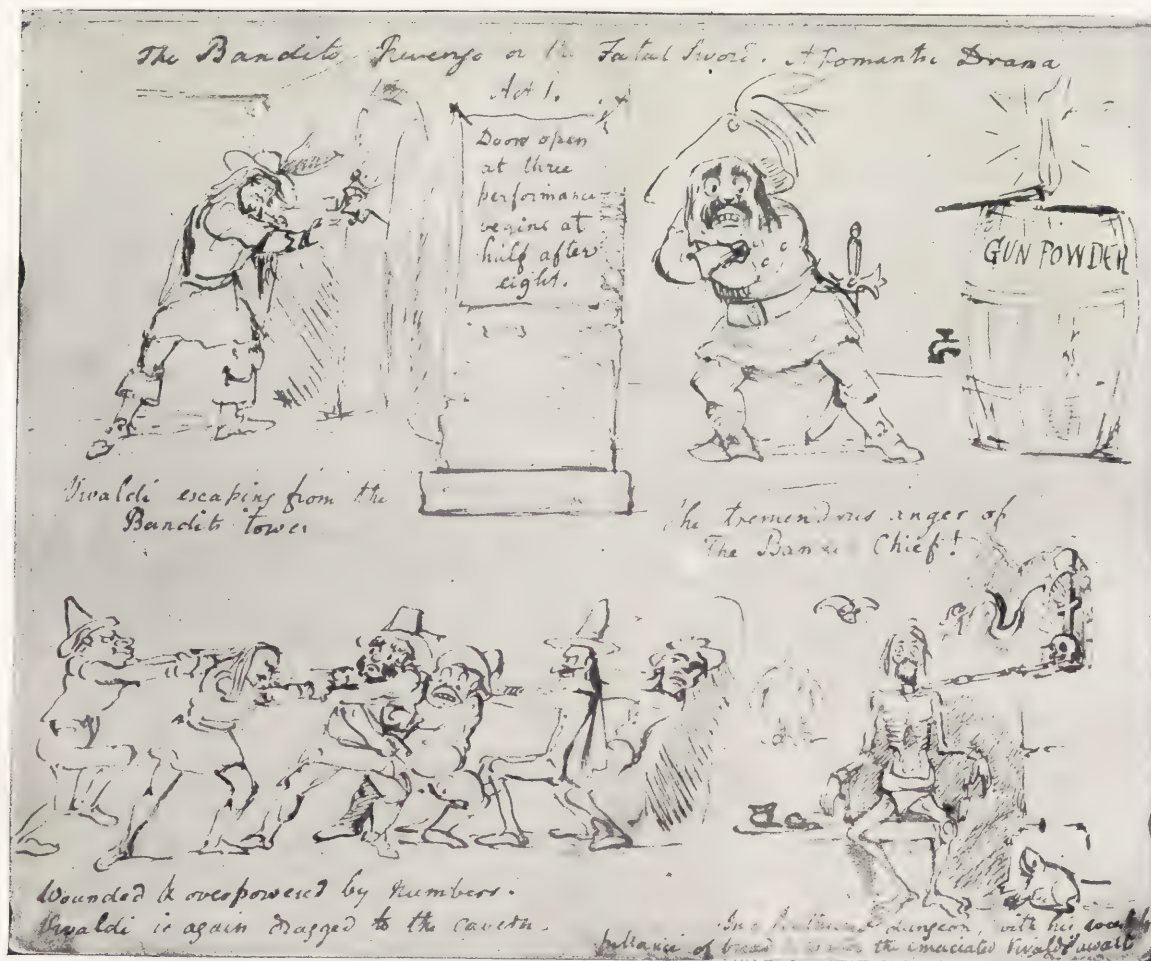 The Bandits Revenge or the Fatal Sword. A Romantic Drama
Act 1.
Doors open
at three
performance
begins at
half after
eight.
GUN POWDER
Vivaldi escaping from the
Bandits tower
The tremendous anger of
The Chief!
Wounded & overpowered by numbers.
Vivaldi is again dragged to the cavern.
dungeon, with his
pittance of bread the emaciated Vivaldi await